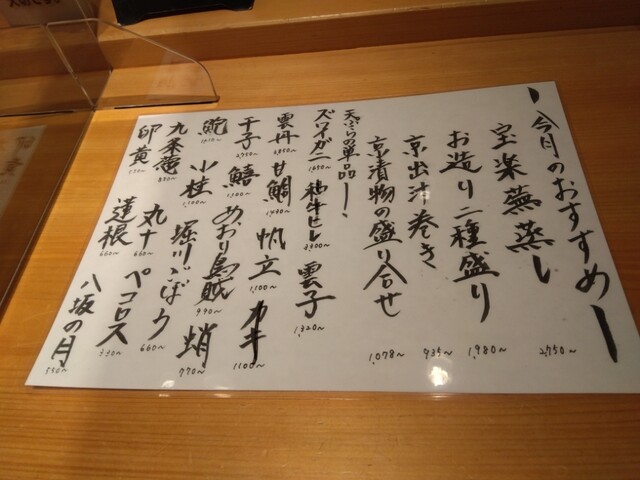 ー今月のおすすめー
宝楽蕪蒸し 2,750〜
お造り二種盛り 1,980〜
京出汁巻き 935〜
京漬物の盛り合せ 1,078〜
天ぷらの単品ー、
ズワイガニ 1,650〜 和牛ヒレ 3300〜 雲子 1,320〜
雲丹 甘鯛 帆立 1,100〜 カキ 1100〜
干子 2,750〜 鱚 1,100〜 めおり烏賊 990〜 蛸 770〜
小柱 1,100〜 堀川ごぼう 660〜
九条葱 丸十 660〜 ペコロス 330〜
卵黄 蓮根 660〜 八坂の月 550〜